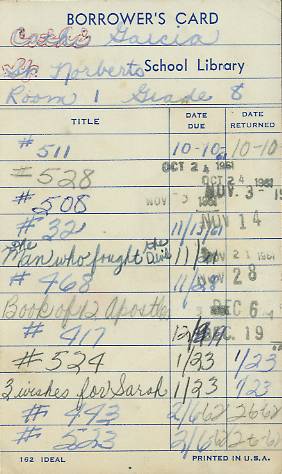 BORROWER'S CARD
Cathi Garcia
St. Norberts School Library
Room 1 Grade 8
TITLE DATE DUE DATE RETURNED
#511 10-10-61 10-10-
#528 OCT 24 1961 OCT 24 1961
#508 NOV - 3 - 196 NOV. 3 - 19
#32 11/13/61 NOV 14
The Man who fought the Devil 11/21 1961
#468 11/28 NOV 28
Book of 12 Apostles DEC 6
#417 12/19 DEC. 19
#524 1/23 1/23
3 wishes for Sarah 1/23 1/23
#443 2/6/62 2662
#553 2/6/62 2662
162 IDEAL PRINTED IN U.S.A.